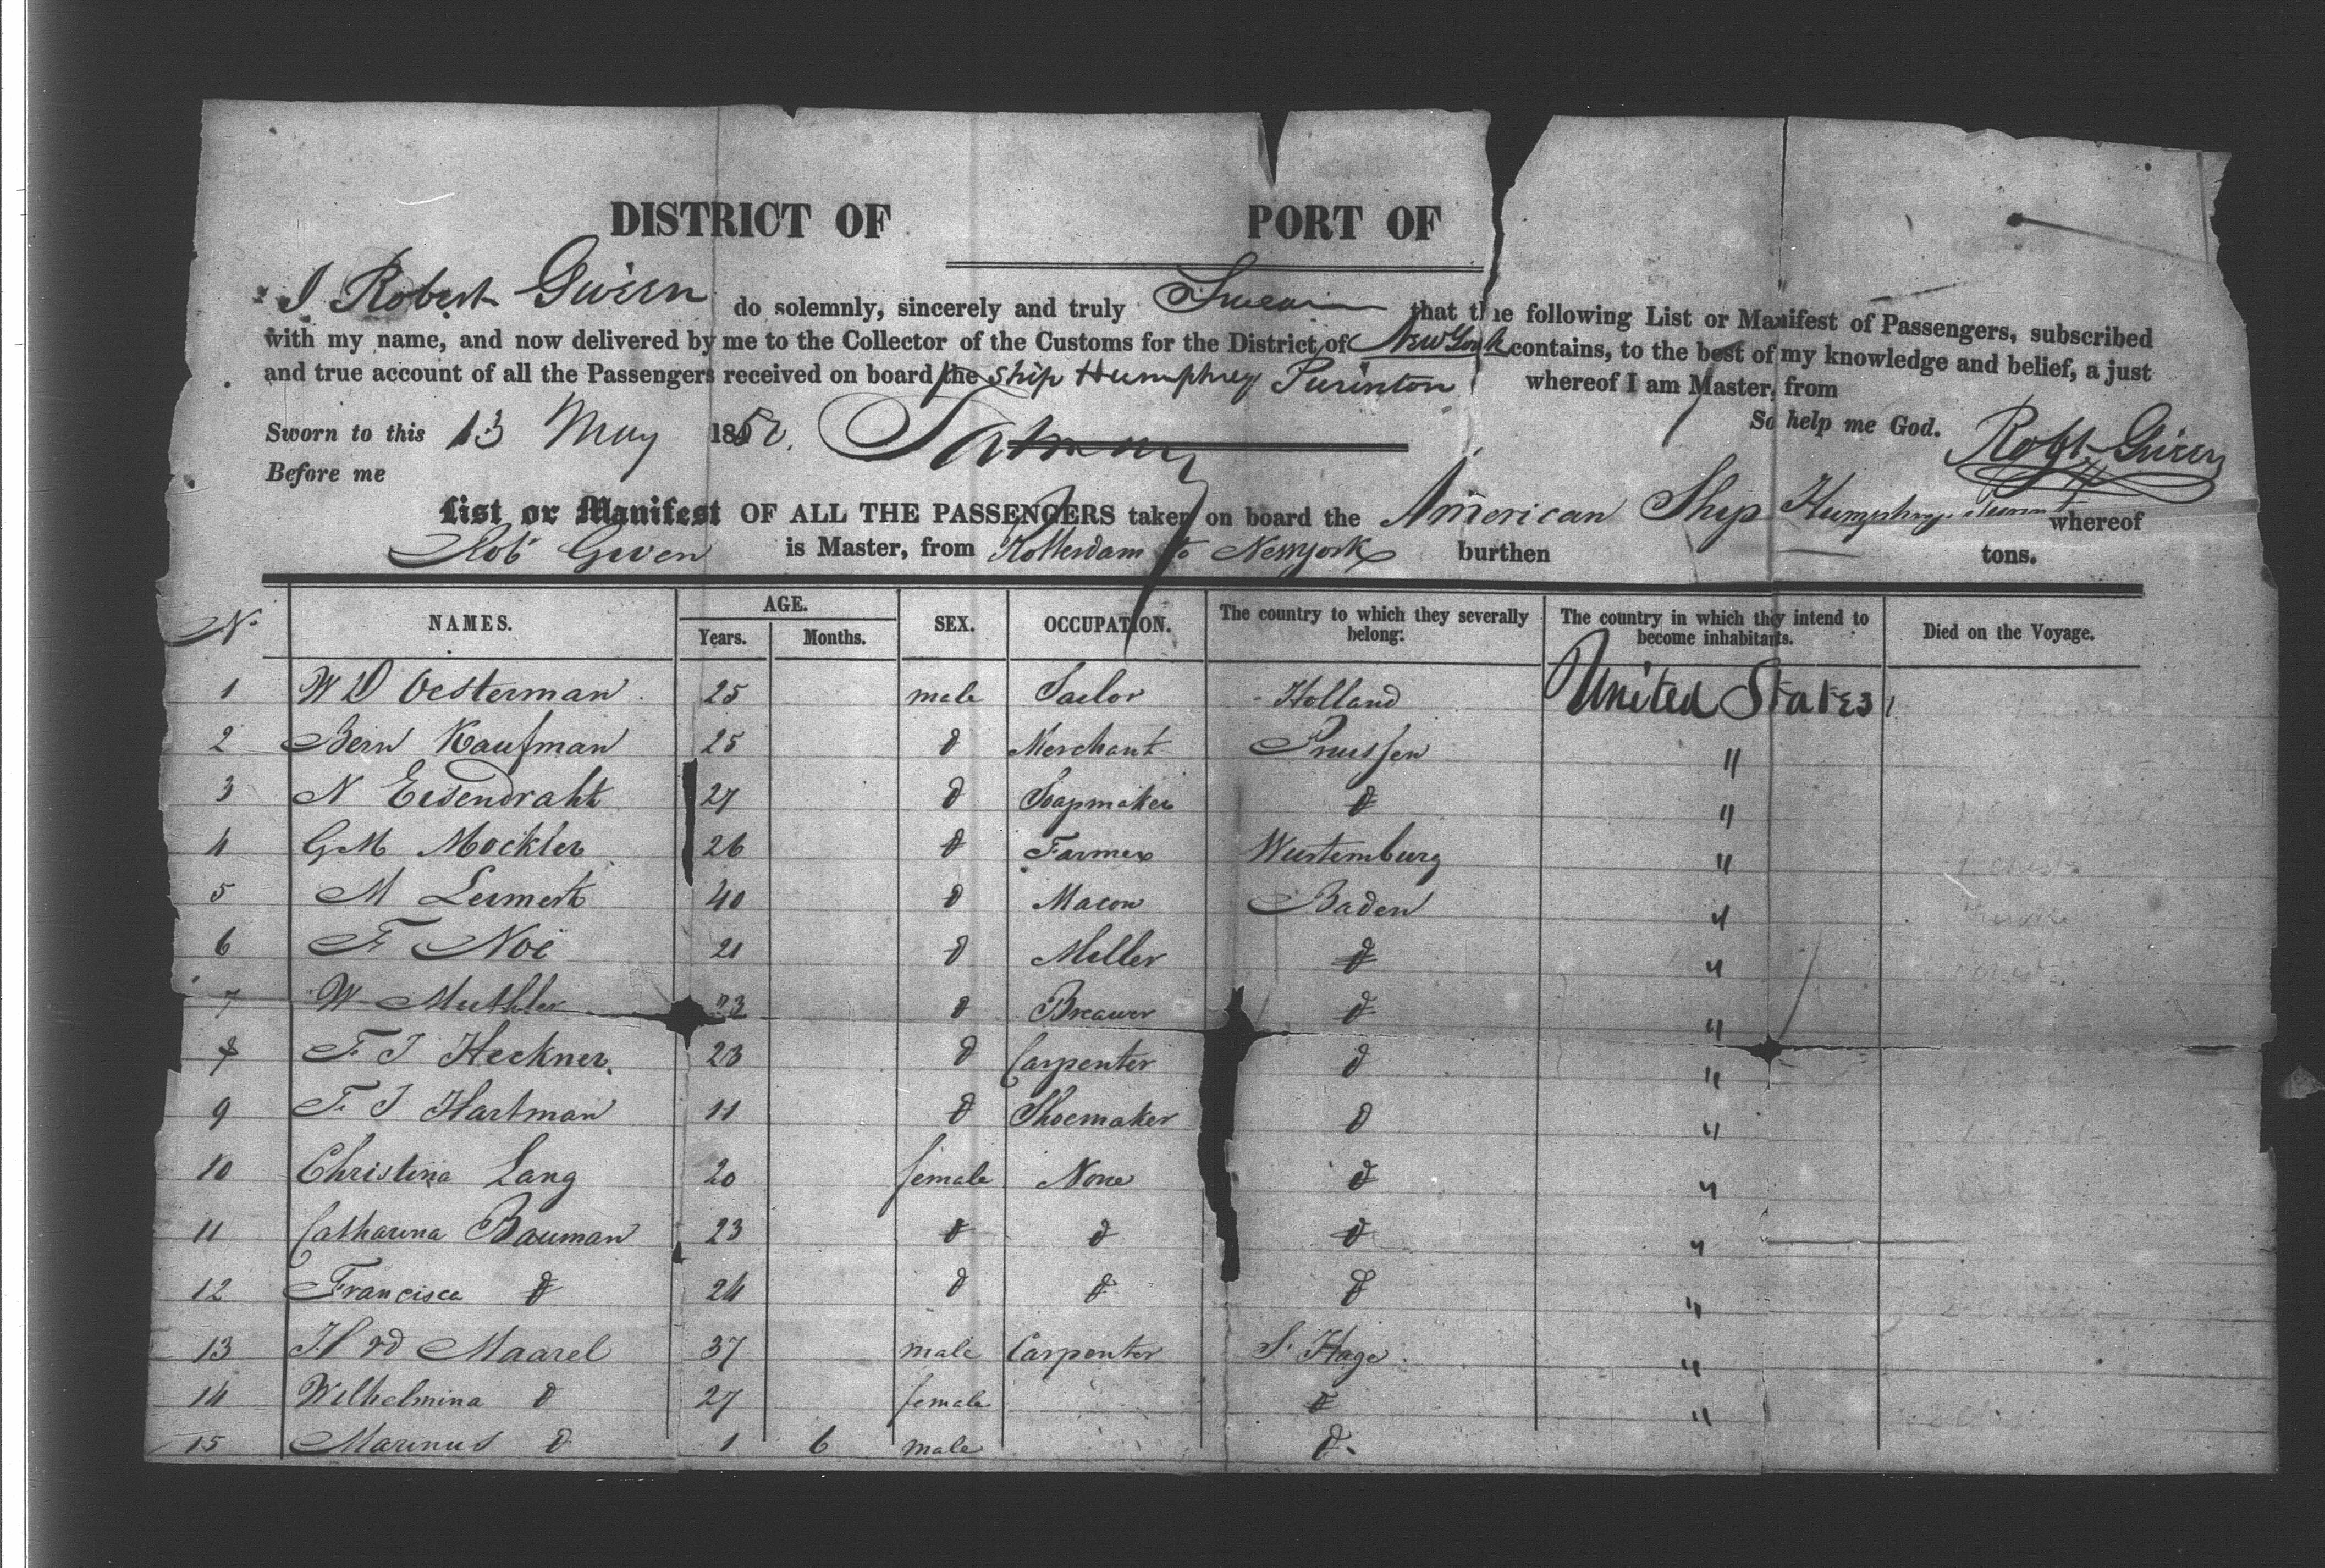 DISTRICT OF PORT OF
I Robert Given do solemnly, sincerely and truly Swear that the following List or Manifest of Passengers, subscribed
with my name, and now delivered by me to the Collector of the Customs for the District of New York contains, to the best of my knowledge and belief, a just
and true account of all the Passengers received on board the Ship Humphrey Purinton whereof I am Master, from
So help me God.
Sworn to this 13 May 1850. Robt Given
Before me
List or Manifest OF ALL THE PASSENGERS taken on board the American Ship Humphrey whereof
Rob Given is Master, from Rotterdam to Newyork burthen tons.
No. NAMES. AGE. Years. Months. SEX. OCCUPATION. The country to which they severally belong: The country in which they intend to become inhabitants. Died on the Voyage.
1 W D Oesterman 25 male Sailor Holland United States
2 Bern Kaufman 25 d Merchant Prussen "
3 N Eisendraht 27 d Soapmaker d "
4 G M Mockler 26 d Farmer Wurtemburg "
5 M Leimert 40 d Macon Baden "
6 F Noë 21 d Miller d "
7 W Muthler 23 d Breawer d "
8 F J Heckner. 23 d Carpenter d "
9 F. J Hartman 11 d Shoemaker d "
10 Christina Lang 20 female None d "
11 Catharina Bauman 23 d d d "
12 Francisca d 24 d d d "
13 H vd Maarel 37 male Carpenter S. Hage. "
14 Wilhelmina d 27 female d "
15 Marinus d 1 6 male d.